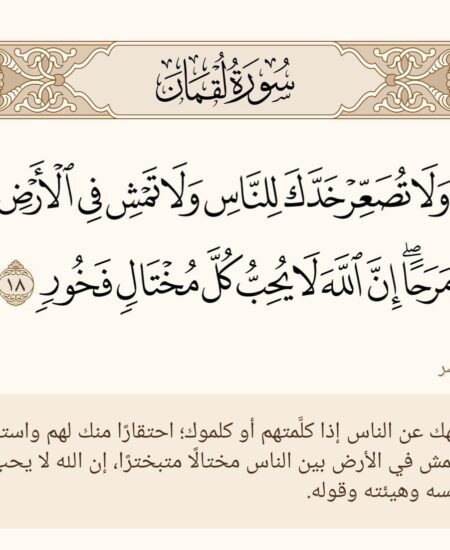 سُورَةُ لُقْمَانَ
وَلَا تُصَعِّرْ خَدَّكَ لِلنَّاسِ وَلَا تَمْشِ فِي ٱلْأَرْضِ
مَرَحًاۖ إِنَّ ٱللَّهَ لَا يُحِبُّ كُلَّ مُخْتَالٍ فَخُورٍ ١٨
عن الناس إذا كلَّمتهم أو كلموك؛ احتقارًا منك لهم
في الأرض بين الناس مختالًا متبخترًا، إن الله لا يحب
وهيئته وقوله.